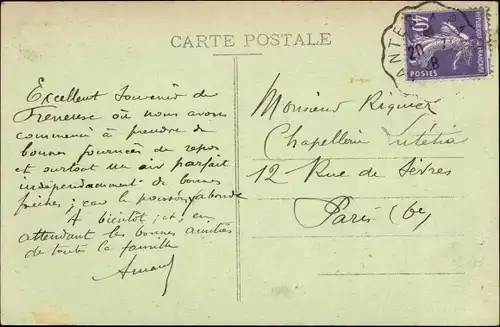 CARTE POSTALE
40
POSTES
Excellent souvenir de
Freneuse où nous avons
commencé à prendre de
bonnes journées de repos
et surtout un air parfait
indépendamment de bonnes
pêches ; car le poisson abonde
A bientôt, et en
attendant les bonnes amitiés
de toute la famille
Monsieur Riquier
Chapellerie
12 Rue de Sèvres
Paris (6e)